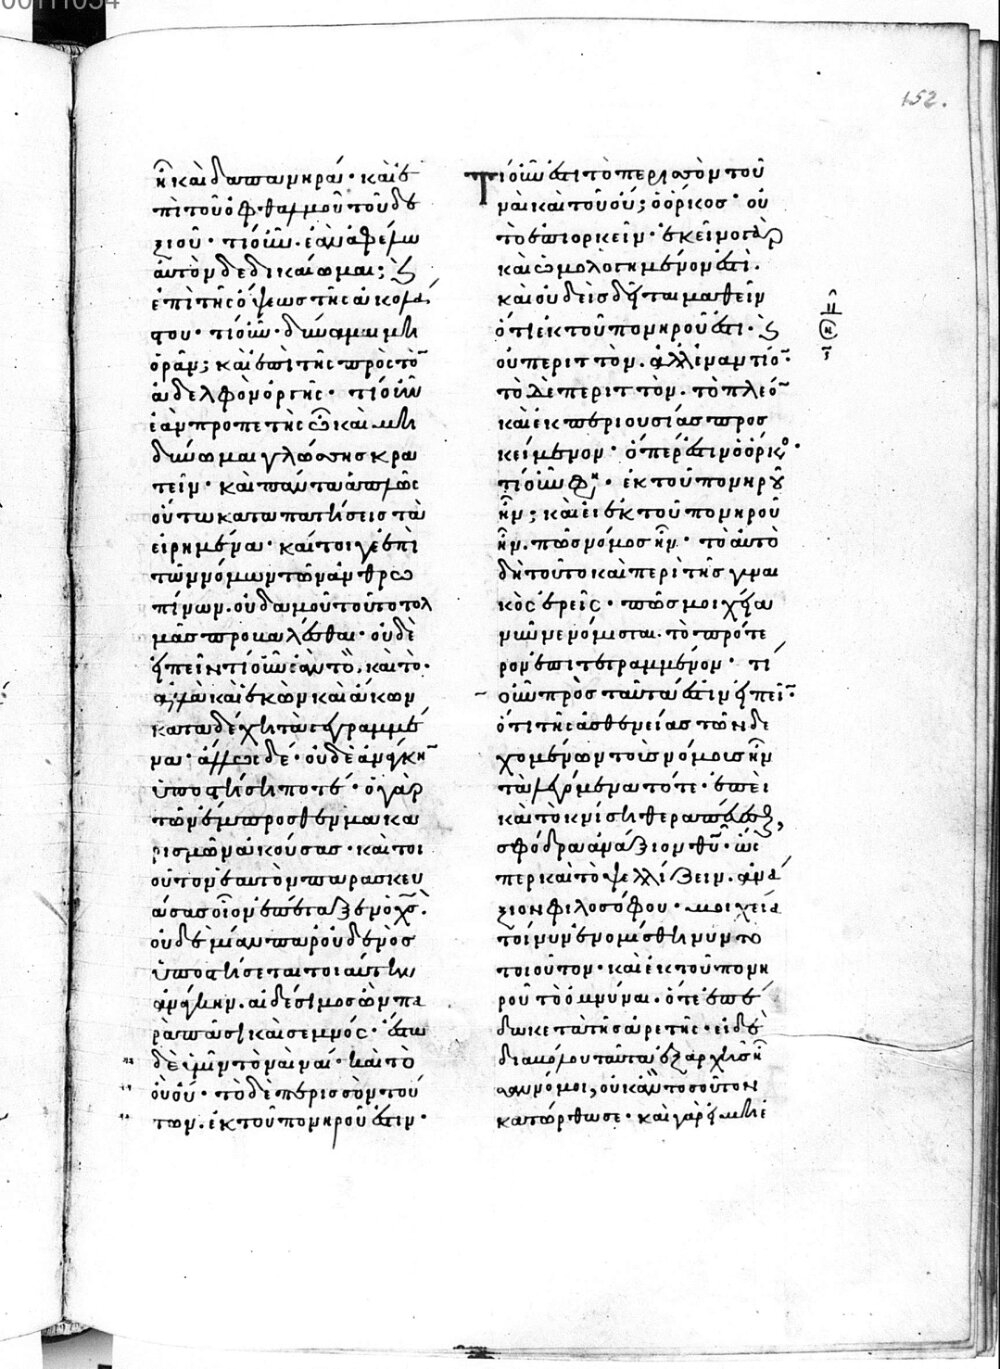 152.
ἦ καὶ δαπανηρά· καὶ ἐ
πὶ τοῦ ὀφθαλμοῦ τοῦ δε
ξιοῦ· τί οὖν· ἐὰν ἀφέλω
αὐτὸν δεδικαίωμαι; ϗ
ἐπὶ τῆς ὄψεως τῆς ἀκολά
στου· τί οὖν· δύναμαι μὴ
ὁρᾶν; καὶ ἐπὶ τῆς πρὸς τὸ
ἀδελφὸν ὀργῆς· τί οὖν
ἐὰν προπετὴς ὦ καὶ μὴ
δύνωμαι γλώσσης κρα
τεῖν· καὶ πάντα ἁπλῶς
οὕτω καταπατήσεις τὰ
εἰρημένα· καίτοιγε ἐπὶ
τῶν νόμων τῶν ἀνθρω
πίνων· οὐδαμοῦ τοῦτο τολ
μᾶς προβαλέσθαι· οὐδὲ
εἰπεῖν τί οὖν ἐὰν τὸ καὶ τό·
ἀλλὰ καὶ ἑκὼν καὶ ἄκων
καταδέχῃ τὰ γεγραμμέ
να· ἄλλως δέ· οὐδὲ ἀνάγκη
ὑποστήσῃ ποτέ· ὁ γὰρ
τῶν ἔμπροσθεν μακα
ρισμῶν ἀκούσας· καὶ τοι
οῦτον ἑαυτὸν παρασκευ
άσας οἷον ἐπέταξεν ὁ χς·
οὐδεμίαν παρ' οὐδενὸς
ὑποστήσεται τοιαύτην
ἀνάγκην. αἰδέσιμος ὢν πα
ρὰ πᾶσι καὶ σεμνός· ἔστω
δὲ ὑμῖν τὸ ναὶ ναί· καὶ τὸ
οὒ οὔ· τὸ δὲ περισσὸν τού
των· ἐκ τοῦ πονηροῦ ἐστιν·
Τί οὖν ἐστι τὸ περισσὸν τοῦ
ναὶ καὶ τοῦ οὔ; ὁ ὅρκος· οὐ
τὸ ἐπιορκεῖν· ἐκεῖνο γὰρ
καὶ ὡμολογημένον ἐστὶ.
καὶ οὐδεὶς δεῖται μαθεῖν
ὅτι ἐκ τοῦ πονηροῦ ἐστι· ϗ
οὐ περιττὸν. ἀλλ' ἐναντίο·
τὸ δὲ περιττὸν. τὸ πλέο
καὶ ἐκ περιουσίας προσ
κείμενον· ὅπερ ἐστὶν ὁ ὅρκος·
τί οὖν φη· ἐκ τοῦ πονηροῦ
ἦν; καὶ εἰ ἐκ τοῦ πονηροῦ
ἦν. πῶς νόμος ἦν· τὸ αὐτὸ
δὴ τοῦτο καὶ περὶ τῆς γυναι
κὸς ἐρεῖς· πῶς μοιχεία
νῦν νενόμισται. τὸ πρότε
ρον ἐπιτετραμμένον· τί
οὖν πρὸς ταῦτα ἐστὶν εἰπεῖ·
ὅτι τῆς ἀσθενείας τῶν δε
χομένων τοὺς νόμους ἦν
τὰ λεγόμενα τότε· ἐπεὶ
καὶ τὸ κνίσῃ θεραπεύεσθαι,
σφόδρα ἀνάξιον θυ· ὥσ
περ καὶ τὸ ψελλίζειν. ἀνά
ξιον φιλοσόφου· μοιχεία
τοίνυν ἐνομίσθη νῦν τὸ
τοιοῦτον· καὶ ἐκ τοῦ πονη
ροῦ τὸ ὀμνύναι. ὅτε ἐπέ
δωκε τὰ τῆς ἀρετῆς· εἰ δὲ
διαβόλου ταῦτα ἐξ ἀρχῆς ἦ
σαν νόμοι, οὐκ ἂν τοσοῦτον
κατώρθωσε· καὶ γὰρ εἰ μὴ ἐ